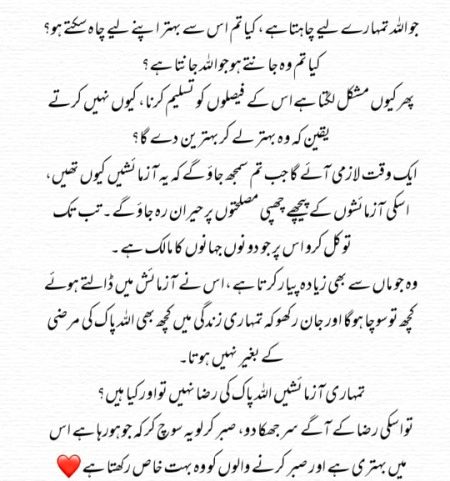 جو اللہ تمہارے لیے چاہتا ہے، کیا تم اس سے بہتر اپنے لیے چاہ سکتے ہو؟
کیا تم وہ جانتے ہو جو اللہ جانتا ہے؟
پھر کیوں مشکل لگتا ہے اس کے فیصلوں کو تسلیم کرنا، کیوں نہیں کرتے
یقین کہ وہ بہتر لے کر بہترین دے گا؟
ایک وقت لازمی آئے گا جب تم سمجھ جاؤ گے کہ یہ آزمائشیں کیوں تھیں،
اسکی آزمائشوں کے پیچھے چھپی مصلحتوں پر حیران رہ جاؤ گے ۔ تب تک
توکل کرو اس پر جو دونوں جہانوں کا مالک ہے ۔
وہ جو ماں سے بھی زیادہ پیار کرتا ہے، اس نے آزمائش میں ڈالتے ہوئے
کچھ تو سوچا ہوگا اور جان رکھو کہ تمہاری زندگی میں کچھ بھی اللہ پاک کی مرضی
کے بغیر نہیں ہوتا۔
تمہاری آزمائشیں اللہ پاک کی رضا نہیں تو اور کیا ہیں؟
تو اسکی رضا کے آگے سر جھکا دو، صبر کر لو یہ سوچ کر کہ جو ہو رہا ہے اس
میں بہتری ہے اور صبر کرنے والوں کو وہ بہت خاص رکھتا ہے ❤️